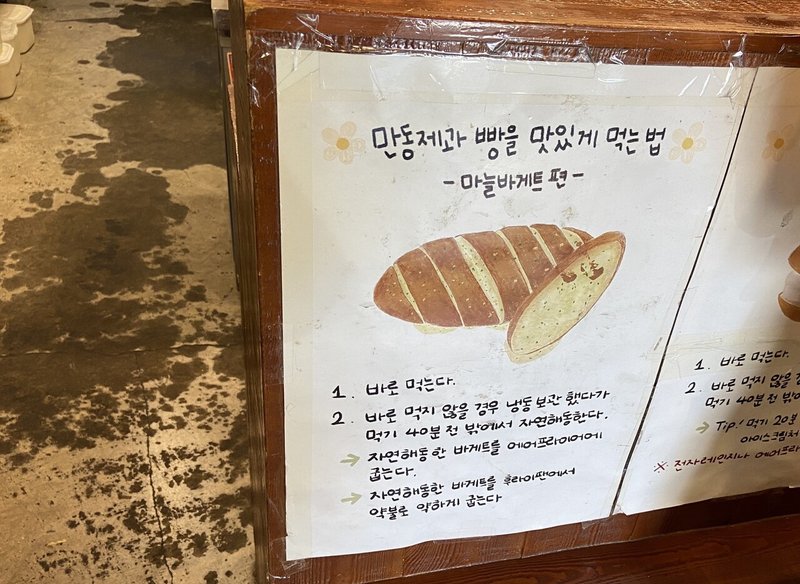 만동제과 빵을 맛있게 먹는 법
- 마늘바게트 편 -
1. 바로 먹는다.
2. 바로 먹지 않을 경우 냉동 보관 했다가
먹기 40분 전 밖에서 자연해동한다.
→ 자연해동 한 바게트를 에어프라이어에
굽는다.
→ 자연해동한 바게트를 후라이팬에서
약불로 약하게 굽는다
1. 바로 먹는다.
2. 바로 먹지 않을
먹기 40분 전 밖에
→ Tip! 먹기 20분
아이스크림처
※ 전자레인지나 에어프라